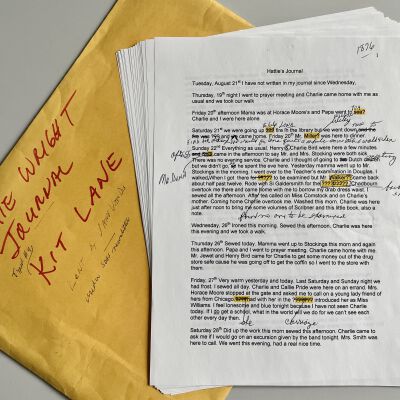 TIE WRIGHT
JOURNAL
KIT LANE
1876
Hattie's Journal
Tuesday, August 21st I have not written in my journal since Wednesday.
Thursday, 19th night I went to prayer meeting and Charlie came home with me as
usual and we took our walk
Friday 20th afternoon Mama was at Horace Moore's and Papa went to
and Charlie and I were alone.
Saturday 21st we were going up fire in the library but we went down and the
came home. Friday 20th Mr. Miller was here to dinner
Sunday 22nd Everything as usual. Henry Charlie Bird were here a few minutes
came in the afternoon to say Mr. and Mrs. Stocking were both sick.
There was no evening service. Charlie and I thought of going to Dutch
but we didn't go, he spent the eve here. Yesterday mamma went up to Mr.
Stockings in the morning. I went over to the Teacher's examination in Douglas. I
walked. When I got there to be examined but Mr. Walker came back
about half past twelve. Rode with Si Goldensmith for the Chebourn
overtook me here and came home with me to borrow my drab dress waist. I
sewed all the afternoon. After tea called on Miss Comstock and on Charlie's
mother. Coming home Charlie overtook me. Washed this morn. Charlie was here
just after noon to bring me some volumes of Scribner and this little book, also a
note.
Wednesday, 26th Ironed this morning. Sewed this afternoon. Charlie was here
this evening and we took a walk.
Thursday 26th, Mamma went up to Stockings this morn and again
this afternoon. Papa and I went to prayer meeting. Charlie came home with me.
Mr. Jewet and Henry Bird came for Charlie to get some money out of the drug
store safe cause he was going off to get the coffin so I went to the store with
them.
Friday, 27th Very warm yesterday and today. Last Saturday and Sunday night we
had frost. I sewed all day. Charlie and Callie Pride were here on an errand. Mrs.
Horace Moore stopped at the gate and asked me to call on a young lady friend of
hers from Chicago had with her in the introduced her as Miss
Williams I feel lonesome and blue tonight because I have not seen Charlie
today. If I go get a school, what in the world will we do for we can't see each
other every day then.
she carriage
Saturday 28th Did up the work this morn sewed this afternoon. Charlie came to
ask me if I would go on an excursion given by the band tonight. Mrs. Smith was
here to call. We went this evening, had a real nice time.